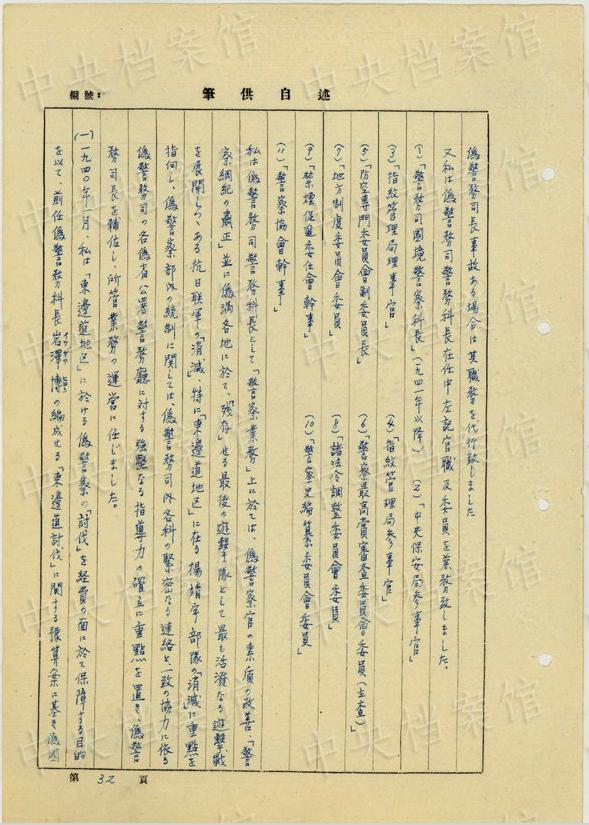 編號：
筆供自述
偽警務司長事故ある場合は其職務を代行致しました
又私は偽警務司警務科長在任中左記官職及委員を兼務致しました。
(1)「警務司國境警察科長」(一九四一年以降) (2)「中央保安局参事官」
(3)「指紋管理局理事官」 (4)「指紋管理局参事官」
(5)「防空専門委員會副委員長」 (6)「警察最高賞與審査委員會委員(主査)」
(7)「地方制度委員會委員」 (8)「諸法令調整委員會委員」
(9)「禁煙促進委任會幹事」 (10)「警察史編纂委員會委員」
(11)「警察協會幹事」
私は偽警務司警務科長として「警察業務」上に於ては、偽警察官の素質の改善、「警
察綱紀の肅正」並に偽満各地に於て「残存」せる最後の遊撃隊として最も活溌なる遊撃戰
を展開しつゝある抗日联軍の「消滅」、特に「東邊道地区」に在る楊靖宇部隊の「消滅」に重點を
指向し、偽警察部隊の統制に関しては、偽警務司内各科の緊密なる連絡と一致の協力に依る
偽警務司の各偽省公署警務廳に対する強堅なる指導力の確立に重點を置き、偽警
務司長を輔佐し、所管業務の運営に任じました。
(一)一九四〇年一月、私は「東邊道地区」に於ける偽警察の「討伐」を経費の面に於て保障する目的
を以て、前任偽警務科長岩澤博の編成せる「東邊道討伐」に関する豫算案に基き偽國
第 32 頁
中央档案馆